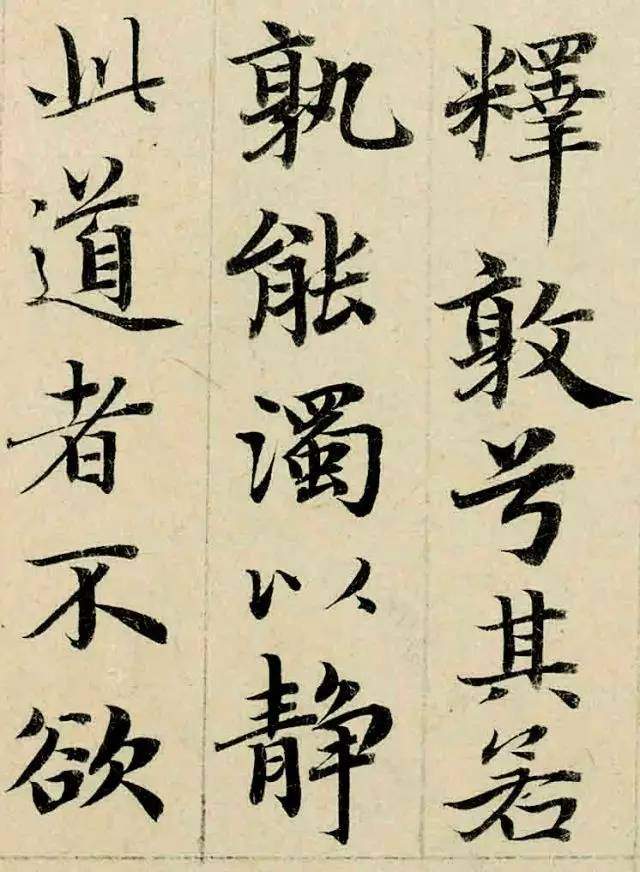 釋敦兮其若
孰能濁以静
此道者不欲